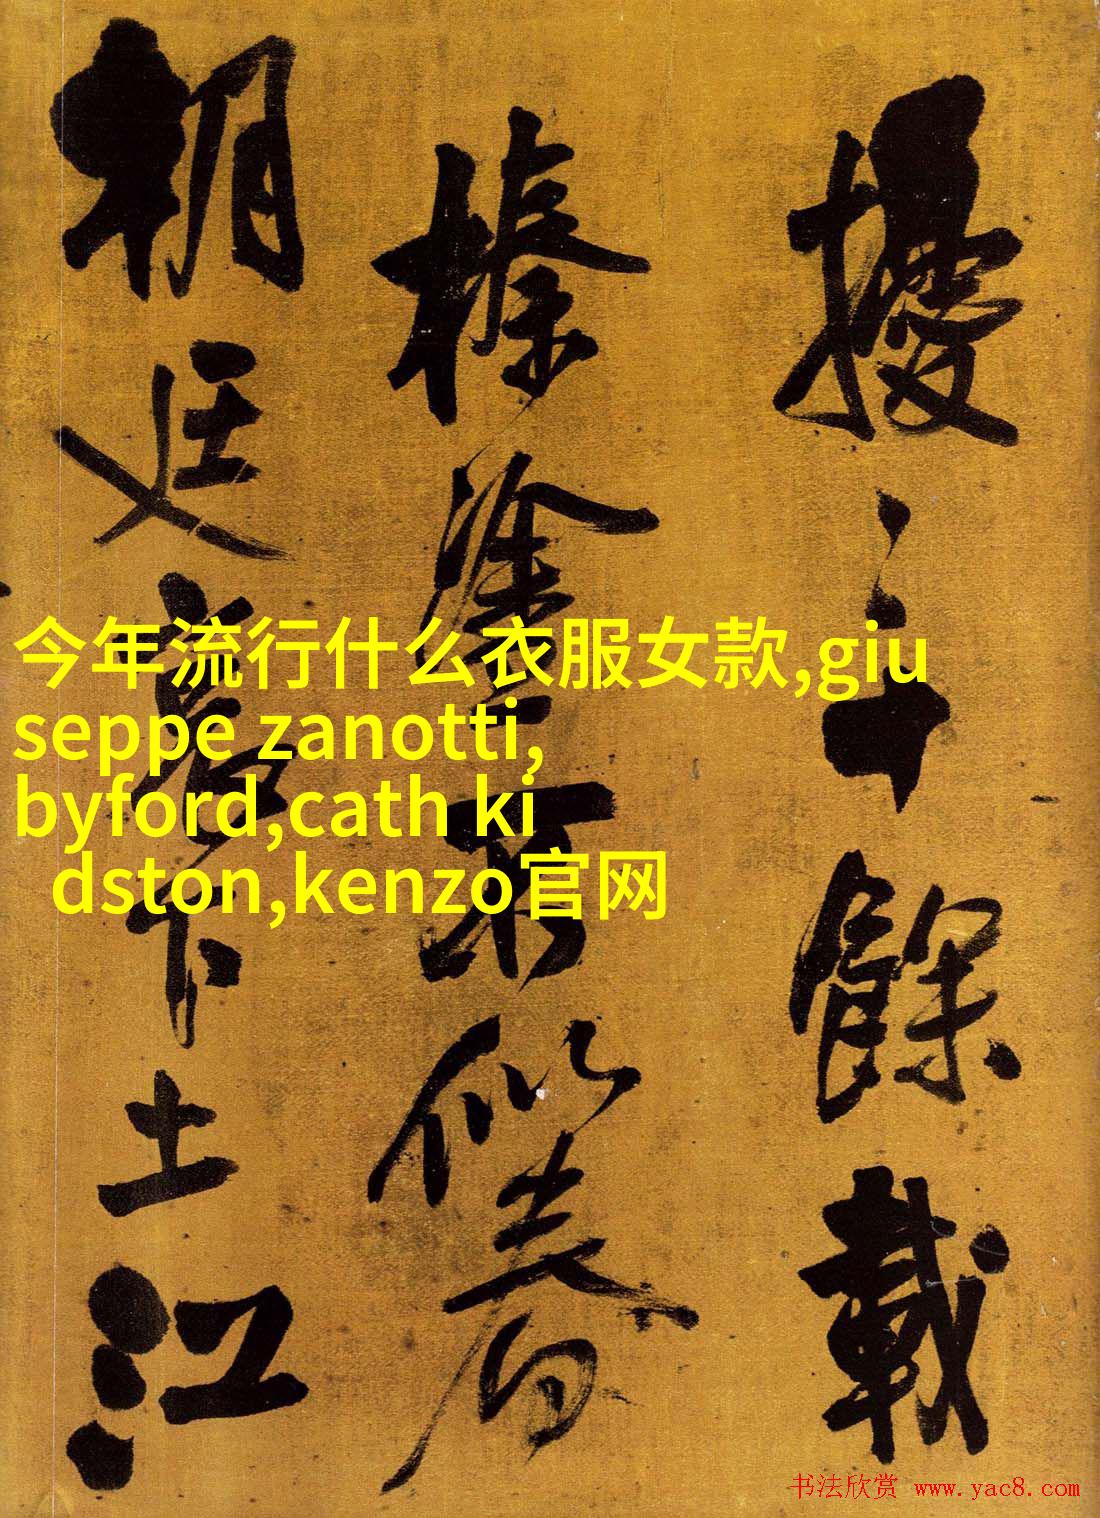 擾十餘載
榛塗不似
朝廷下土江
今年流行什么衣服女款,giu
seppe zanotti,
byford,cath ki
dston,kenzo官网
书法欣赏 www.yac8.com